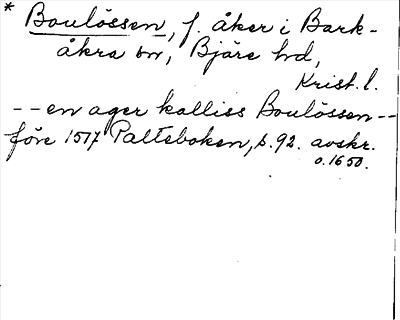 * Boulössen, f. åker i Bark-
åkra sn, Bjäre hd,
Krist. l.
-- en ager kalliss Boulössen --
före 1517 Palteboken, s. 92. avskr.
o. 1650.